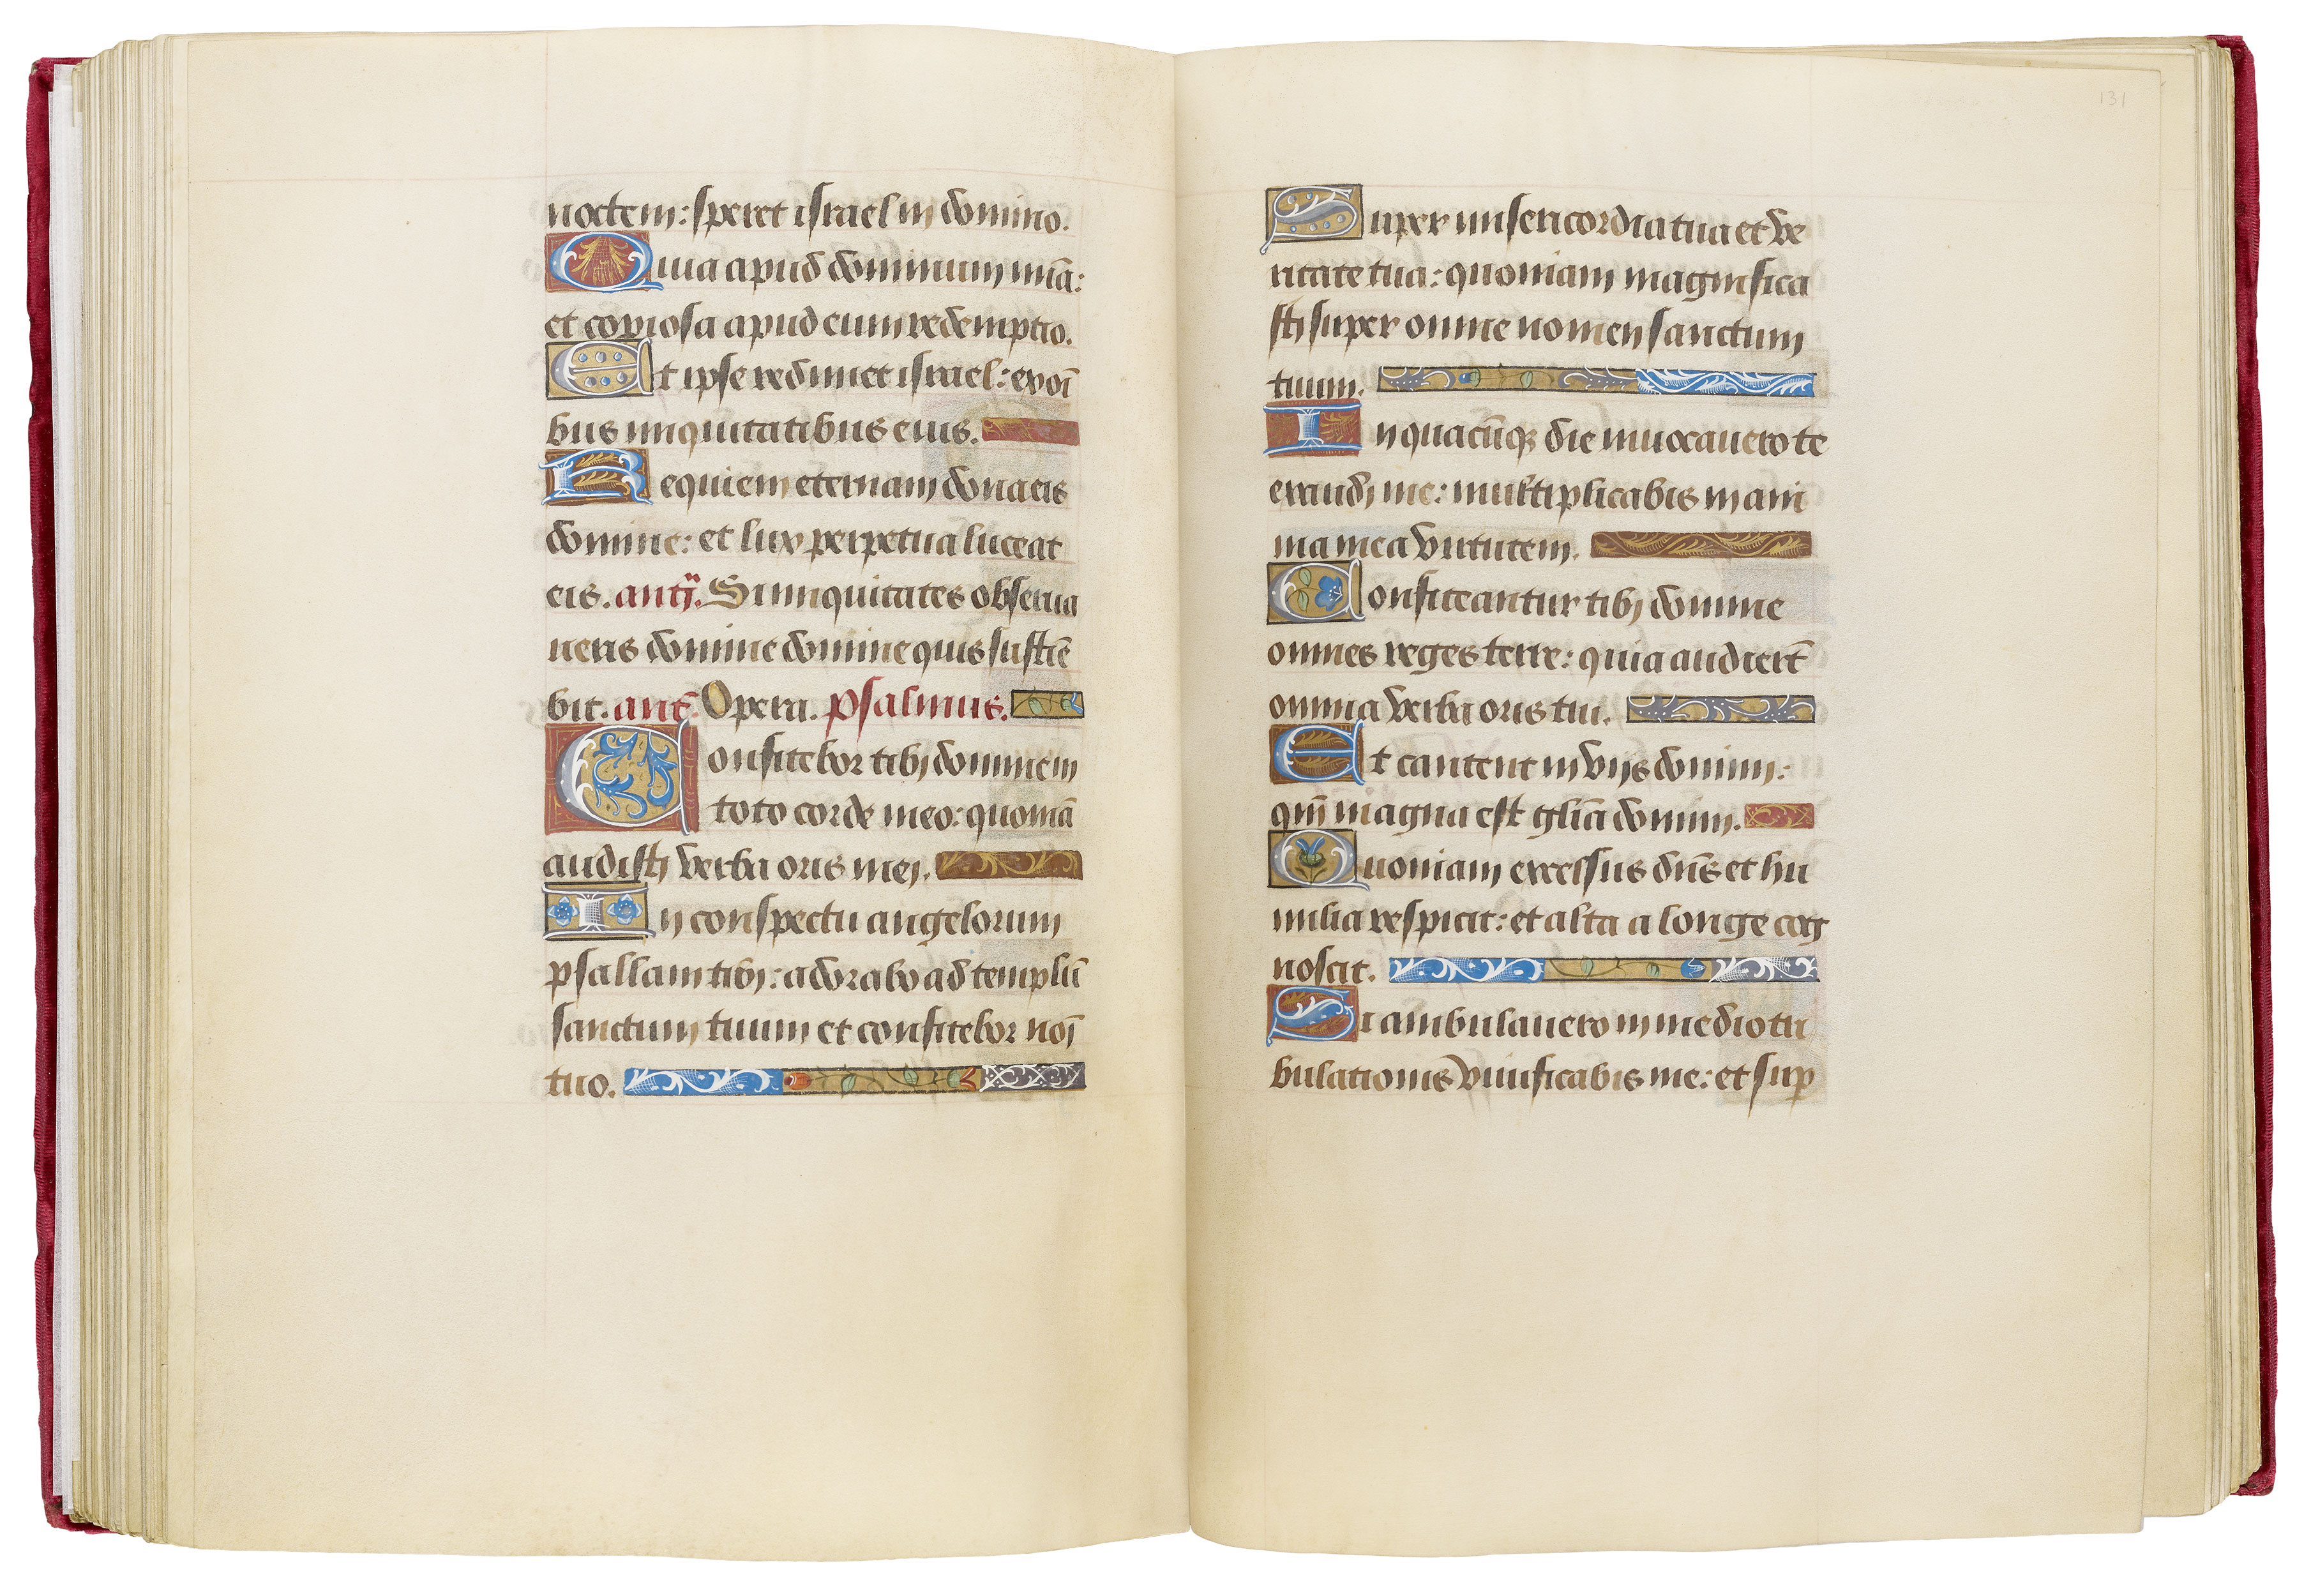 noctem: speret israel in domino.
Quia apud dominum mīa:
et copiosa apud eum redemptio.
Et ipse redimet israel: ex oī
bus iniquitatibus eius.
Requiem eternam dona eis
domine: et lux perpetua luceat
eis. antḡ. Si iniquitates obserua
ueris domine domine quis sustīe
bit. anͣ. Opera. psalmus.
Confitebor tibi domine in
toto corde meo: quoniā
audisti verba oris mei.
In conspectu angelorum
psallam tibi: adorabo ad templū
sanctum tuum et confitebor noī
tuo.
131
Super misericordia tua et ve
ritate tua: quoniam magnifica
sti super omne nomen sanctum
tuum.
In quacūqꝫ die inuocauero te
exaudi me: multiplicabis in ani
ma mea virtutem.
Confiteantur tibi domine
omnes reges terre: quia audierūt
omnia verba oris tui.
Et cantent in vijs domini:
qm̄ magna est glīa domini.
Quoniam excelsus dn̄s et hu
milia respicit: et alta a longe cog
noscit.
Si ambulauero in medio tri
bulationis viuificabis me: et suꝑ